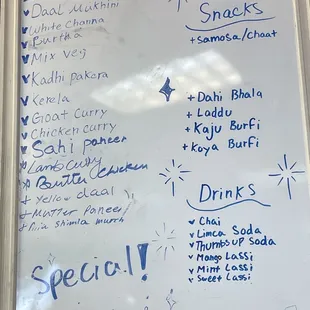 Daal Mukhini
White Channa
Burtha
Mix veg
Kadhi pakora
Kerela
Goat Curry
Chicken curry
Sahi paneer
Lamb curry
Butter chicken
+ Yellow daal
+ Mutter Paneer/
shimla murch
Special!
Snacks
+ Samosa/chaat
+ Dahi Bhala
+ Laddu
+ Kaju Burfi
+ Koya Burfi
Drinks
Chai
Limca Soda
Thumbs up Soda
Mango Lassi
Mint Lassi
Sweet Lassi